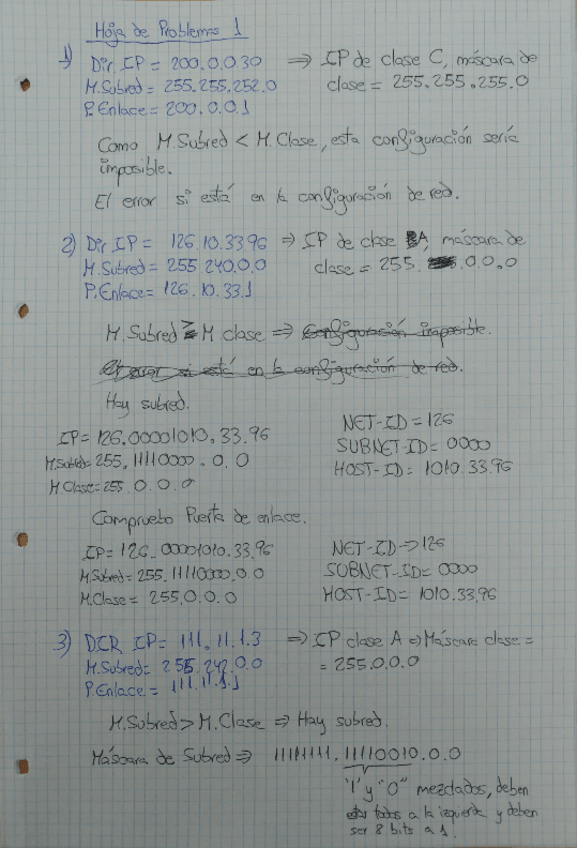 Hoja de Problemas 1
1) Dir IP = 200.0.0.30 ⇒ IP de clase C, máscara de
M.Subred = 255.255.252.0 clase = 255.255.255.0
P.Enlace = 200.0.0.1
Como M.Subred < M.Clase, esta configuración sería
imposible.
El error si está en la configuración de red.
2) Dir IP = 126.10.33.96 ⇒ IP de clase A, máscara de
M.Subred = 255.240.0.0 clase = 255.0.0.0
P.Enlace = 126.10.33.1
M.Subred ≥ M.clase ⇒ Configuración imposible.
El error si está en la configuración de red.
Hay subred.
IP = 126.00001010.33.96 NET-ID = 126
M.Subred = 255.11110000.0.0 SUBNET-ID = 0000
M Clase = 255.0.0.0 HOST-ID = 1010.33.96
Compruebo Puerta de enlace.
IP = 126.00001010.33.96 NET-ID => 126
M.Subred = 255.11110000.0.0 SUBNET-ID = 0000
M.Clase = 255.0.0.0 HOST-ID = 1010.33.96
3) DIR IP = 111.11.1.3 ⇒ IP clase A ⇒ Máscara clase =
M.Subred = 255.242.0.0 = 255.0.0.0
P.Enlace = 111.11.1.1
M.Subred > M.Clase ⇒ Hay subred.
Máscara de Subred ⇒ 11111111.11110010.0.0
"1" y "0" mezclados, deben
estar todos a la izquierda y deben
ser 8 bits a 1.